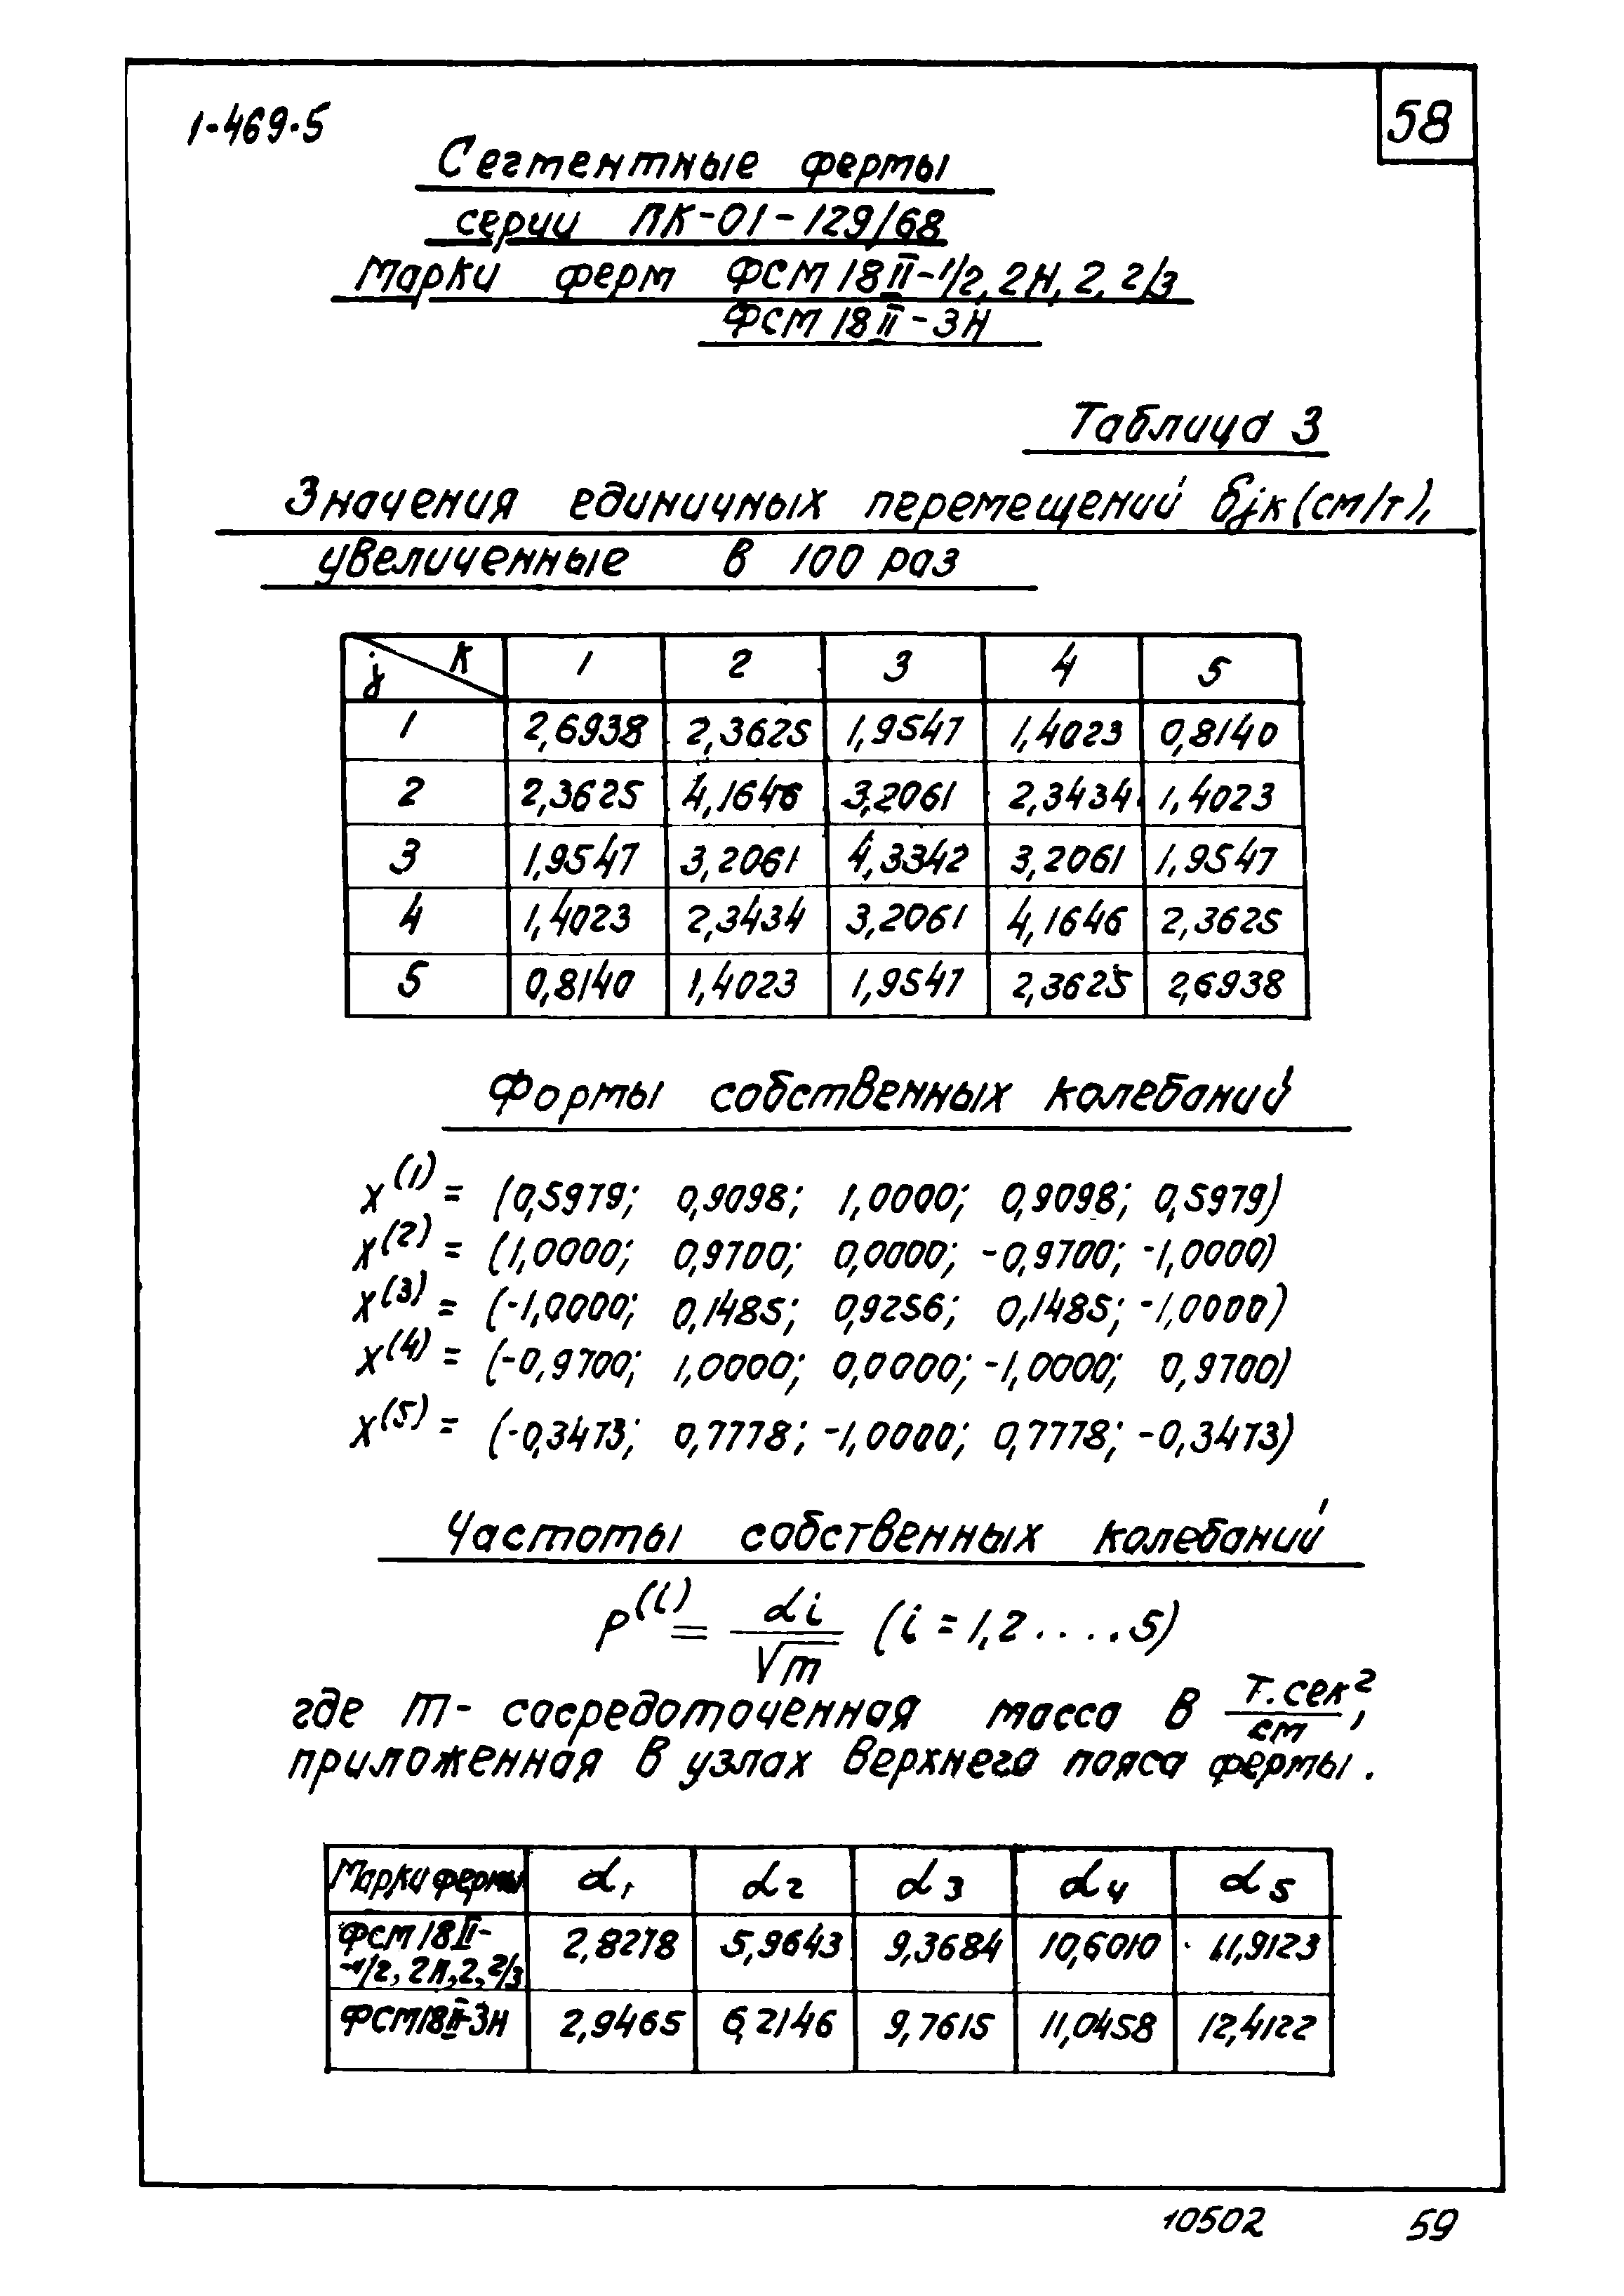 1-469.5
58
Сегментные фермы
серии ПК-01-129/68
Марки ферм ФСМ 18 II-1/2, 2Н, 2, 2/3
ФСМ 18 II-3Н
Таблица 3
Значения единичных перемещений δjк (см/т),
увеличенные в 100 раз
j к 1 2 3 4 5
1 2,6938 2,3625 1,9547 1,4023 0,8140
2 2,3625 4,1646 3,2061 2,3434 1,4023
3 1,9547 3,2061 4,3342 3,2061 1,9547
4 1,4023 2,3434 3,2061 4,1646 2,3625
5 0,8140 1,4023 1,9547 2,3625 2,6938
Формы собственных колебаний
x(1) = (0,5979; 0,9098; 1,0000; 0,9098; 0,5979)
x(2) = (1,0000; 0,9700; 0,0000; -0,9700; -1,0000)
x(3) = (-1,0000; 0,1485; 0,9256; 0,1485; -1,0000)
x(4) = (-0,9700; 1,0000; 0,0000; -1,0000; 0,9700)
x(5) = (-0,3473; 0,7778; -1,0000; 0,7778; -0,3473)
Частоты собственных колебаний
P(i) = αi / √m (i = 1,2 . . . . 5)
где m - сосредоточенная масса в т.сек²/см,
приложенная в узлах верхнего пояса фермы.
Марки фермы α1 α2 α3 α4 α5
ФСМ 18 II- 2,8278 5,9643 9,3684 10,6010 11,9123
-1/2, 2Н, 2, 2/3
ФСМ18 II-3Н 2,9465 6,2146 9,7615 11,0458 12,4122
10502 59